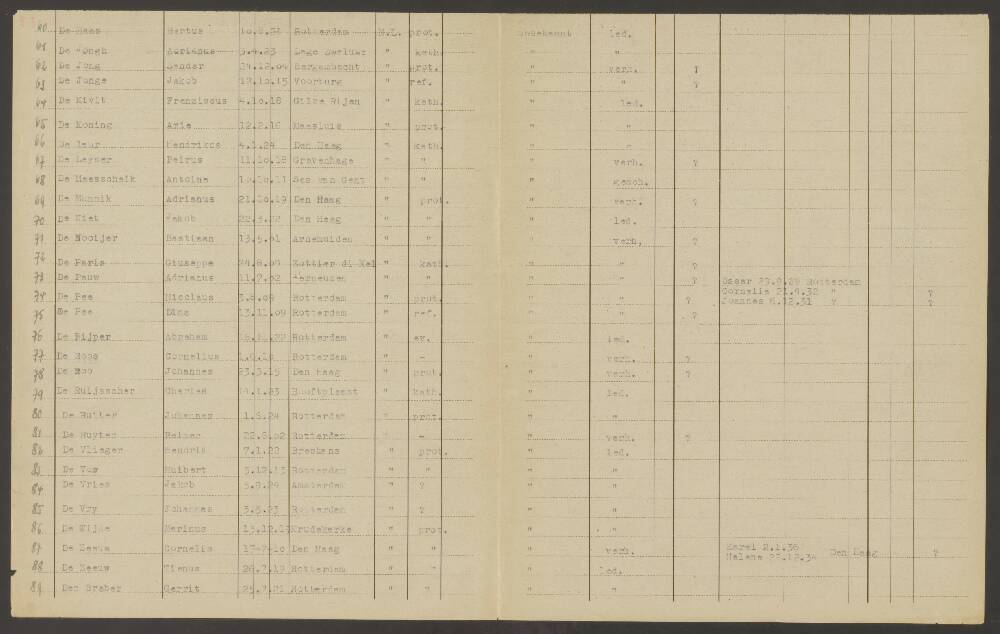 60 De Haas Bertus Rotterdam N.L. prot. unbekannt led.
61 De Jongh Adrianus 5.4.23 Lage Zwaluwe " kath. " "
62 De Jong Sander 24.12.04 Bergambacht " prot. " verh. ?
63 De Jonge Jakob 17.10.15 Voorburg " ref. " " ?
64 De Kivit Franziscus 4.10.18 Gilze Rijen " kath. " led.
65 De Koning Arie 12.2.16 Maasluis " prot. " "
66 Hendrikus 4.1.24 Den Haag " kath. " "
67 De Leyser Petrus 11.10.18 Gravenhage " " " verh. ?
68 De Maesschalk Antoine Sas van Gent " " " gesch.
69 De Munnik Adrianus 21.10.19 Den Haag " prot. " verh. ?
70 De Niet Jakob 22.3.22 Den Haag " " " led.
71 De Nooijer Bastiaan 13.5.01 Arnemuiden " " " verh, ?
72 De Paris Giuseppe 24.8.09 " kath. " " ?
73 De Pauw Adrianus 11.7.02 Terneuzen " " " " ? Oscar 29.9.29 Rotterdam
74 De Pee Nicolaus 3.6.09 Rotterdam " prot. " " ? Cornelia 21.4.32 " ?
Joannes 6.12.31 ? ?
75 De Pee Dina 13.11.09 Rotterdam " ref. " " ?
76 De Rijper Abraham Rotterdam " ev. " led.
77 De Roos Cornelius Rotterdam " - " verh. ?
78 De Roo Johannes 23.3.15 Den Haag " prot. " verh. ?
79 De Ruijsscher Charles 14.1.23 Hooftplaat " kath. " led.
80 De Ruiter Johannes 1.6.24 Rotterdam " prot. " "
81 De Ruyter Reiner 22.8.02 Rotterdam " - " verh. ?
82 De Vlieger Hendrik 7.1.22 Breskens " prot. " led.
83 De Vos Huibert 5.12.13 Rotterdam " " " "
84 De Vries Jakob 5.9.24 Amsterdam " ? " "
85 De Vry Johannes 3.5.23 Rotterdam " ? " "
86 De Wijze Marinus Krudekerke " prot. " "
87 De Zeeuw Cornelis 17-7-10 Den Haag " " " verh. Karel 2.1.36 Den Haag ?
Helene 22.12.34
88 De Zeeuw Tienus 26.7.19 Rotterdam " " " led.
89 Den Braber Gerrit 25.7.21 Rotterdam " " " "